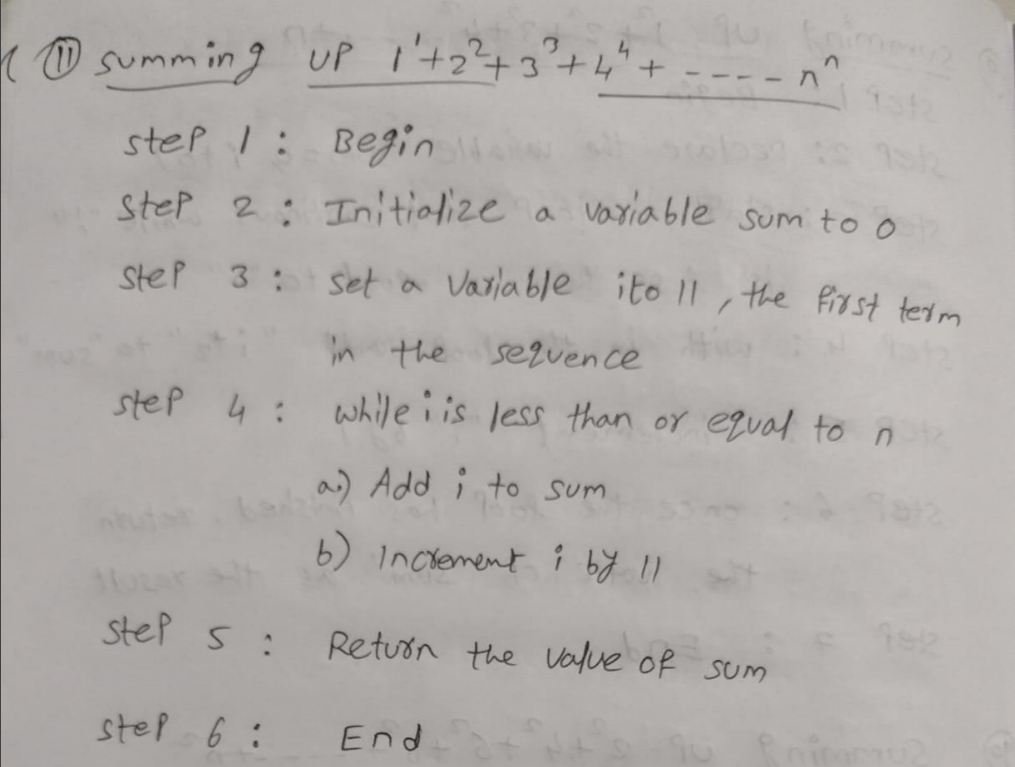 (11) summing up 1¹+2²+3³+4⁴+ ----- nⁿ
step 1 : Begin
step 2 : Initialize a variable sum to 0
step 3 : set a variable i to 11, the first term
in the sequence
step 4 : while i is less than or equal to n
a) Add i to sum
b) Increment i by 11
step 5 : Return the value of sum
step 6 : End